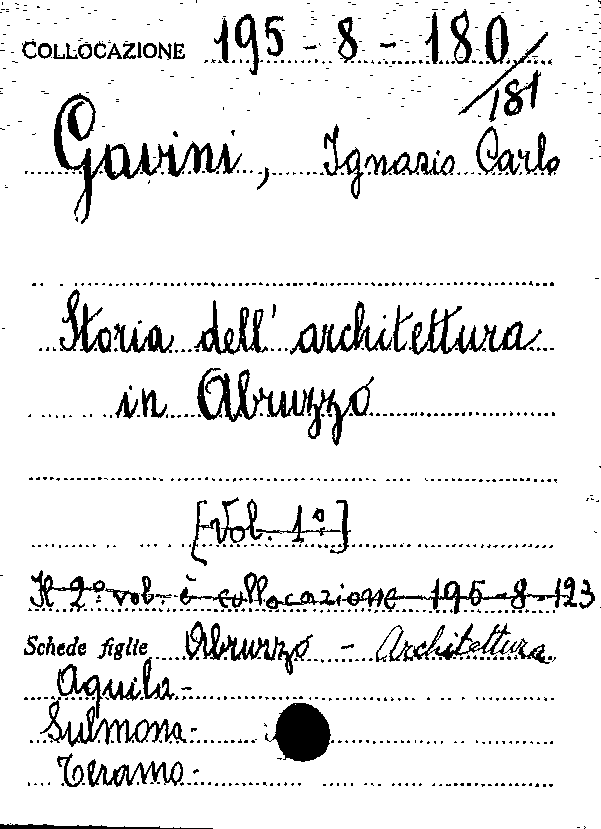 COLLOCAZIONE 195-8-180/181
Gavini, Ignazio Carlo
Storia dell'architettura
in Abruzzo
[Vol. 1º]
Il 2º vol. è collocazione 195-8-123
Schede figlie Abruzzo - Architettura.
Aquila-
Sulmona-
Teramo-